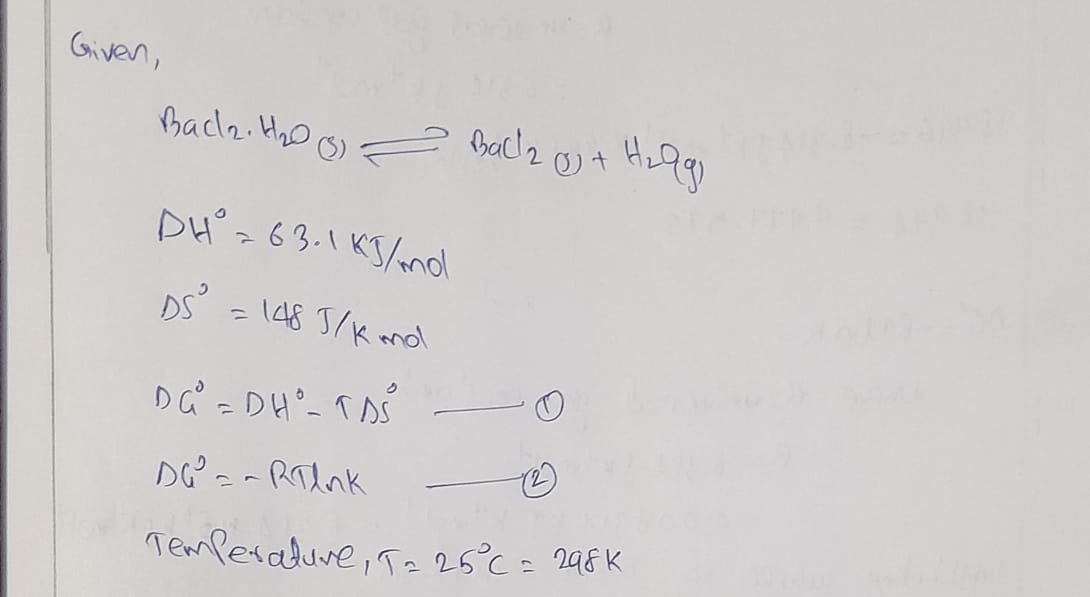 Given,
BaCl2.H2O (s) ⇌ BaCl2 (s) + H2O(g)
DH° = 63.1 KJ/mol
DS° = 148 J/K mol
DG° = DH° - TDS° —— ①
DG° = - RTlnK —— ②
Temperature, T = 25°C = 298K